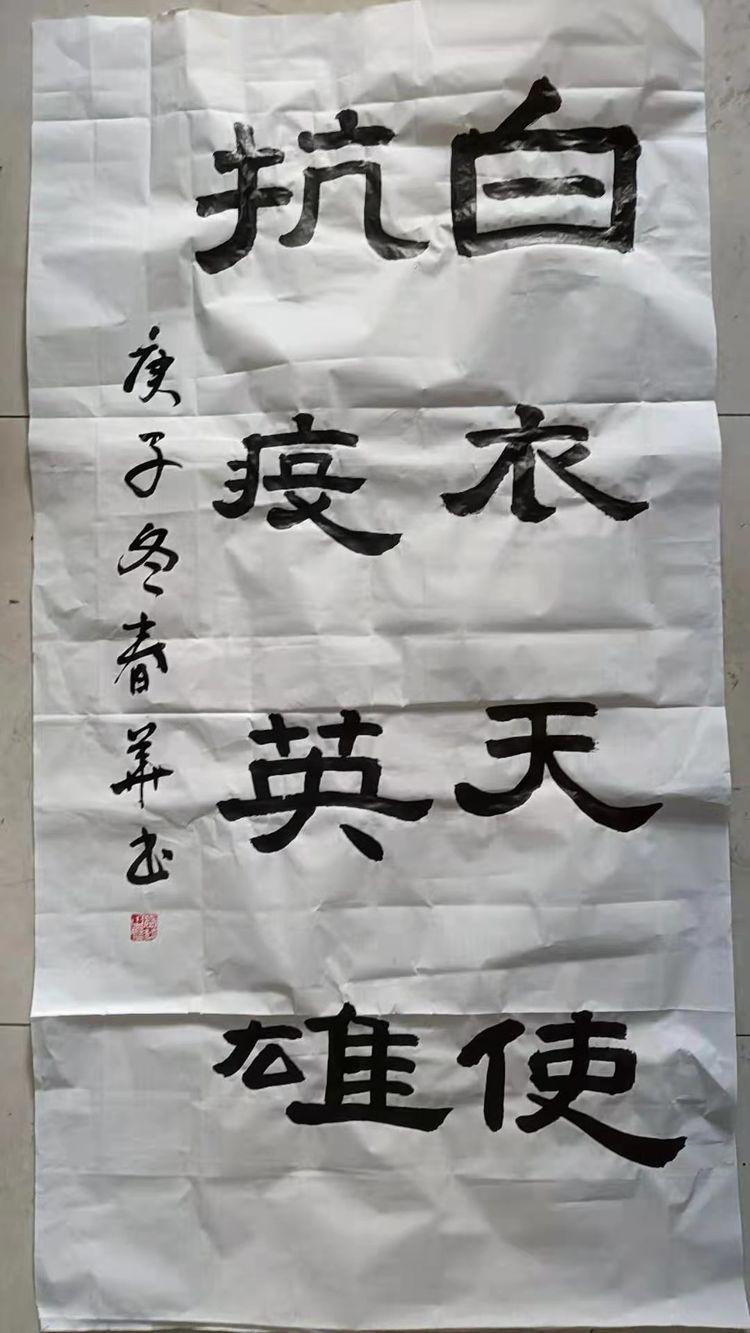 白衣天使
抗疫英雄
庚子冬春華书